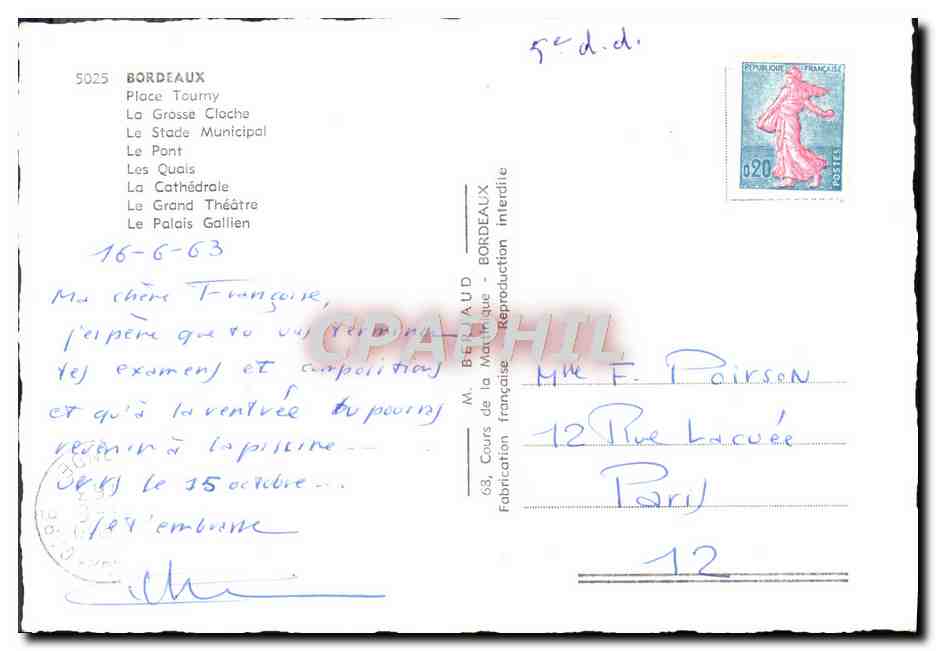 5e d.d.
RÉPUBLIQUE FRANÇAISE
0,20
POSTES
5025 BORDEAUX
Place Tourny
La Grosse Cloche
Le Stade Municipal
Le Pont
Les Quais
La Cathédrale
Le Grand Théâtre
Le Palais Gallien
16-6-63
Ma chère Françoise,
j'espère que tu vas terminer
tes examens et compositions
et qu'à la rentrée tu pourras
revenir à la piscine ...
vers le 15 octobre ...
Je t'embrasse
M. BERJAUD
63, Cours de la Martinique - BORDEAUX
Fabrication française Reproduction interdite
CPAPHIL
Mlle F. Poirson
12 Rue Lacuée
Paris
12